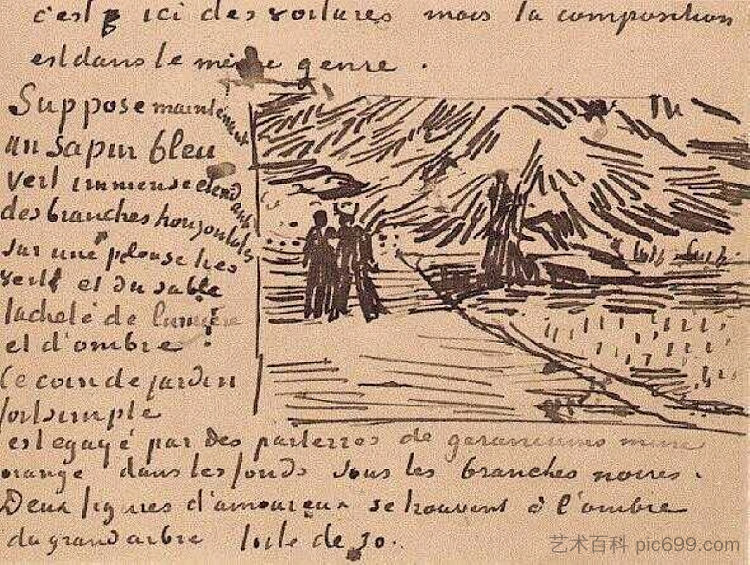 c'est ici des voitures mais la composition
est dans le même genre.
Suppose maintenant
un sapin bleu
vert immense étendant
des branches horizontales
sur une pelouse très
verte et du sable
tacheté de lumière
et d'ombre.
Ce coin de jardin
fort simple
est égayé par des parterres de geraniums mine
orange dans les fonds sous les branches noires.
Deux figures d'amoureux se trouvent à l'ombre
du grand arbre toile de 30.
艺术百科 pic699.com